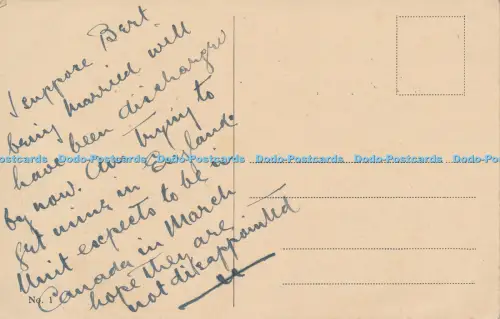 I suppose Bert
being married will
have been discharged
by now. Am Trying to
get mine in England.
Unit expects to be in
Canada in March
hope they are
not disappointed
No. 1
Dodo-Postcards Dodo-Postcards Dodo-Postcards Dodo-Postcards Dodo-Postcards